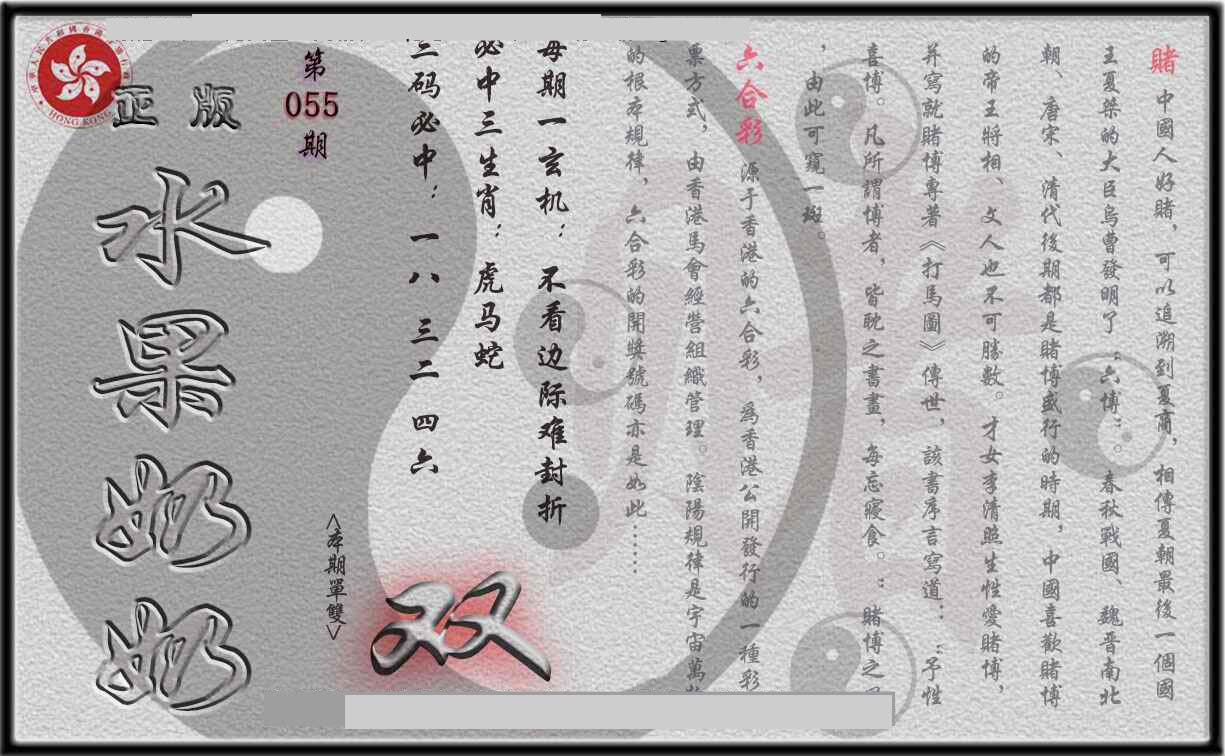 賭 中國人好賭，可以追溯到夏商，相傳夏朝最後一個國
王夏桀的大臣烏曹發明了“六博”。春秋戰國、魏晋南北
朝、唐宋、清代後期都是賭博盛行的時期，中國喜歡賭博
的帝王將相、文人也不可勝數。才女李清照生性愛賭博，
并寫就賭博專著《打馬圖》傳世，該書序言寫道：“予性
喜博。凡所謂博者，皆耽之書畫，每忘寢食。”賭博之
，由此可窺一斑。
六合彩 源于香港的六合彩，為香港公開發行的一種彩
票方式，由香港馬會經營組織管理。陰陽規律是宇宙萬
的根本規律，六合彩的開獎號碼亦是如此……
每期一玄机：不看边际难封折
必中三生肖：虎马蛇
三码必中：一八 三二 四六
第
055
期
<本期單雙>
双
正版
水果奶奶
HONG KONG